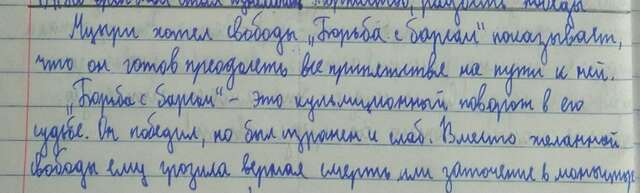 стал
радость победы
Мцыри хотел свободы „Борьба с барсом" показывает,
что он готов преодолеть все припятствя на пути к ней.
„Борьба с барсом" – это кульмиционный поворот в его
судьбе. Он победил, но был изранен и слаб. Вместо желанной
свободы ему грозила верная смерть или заточение в монастыре